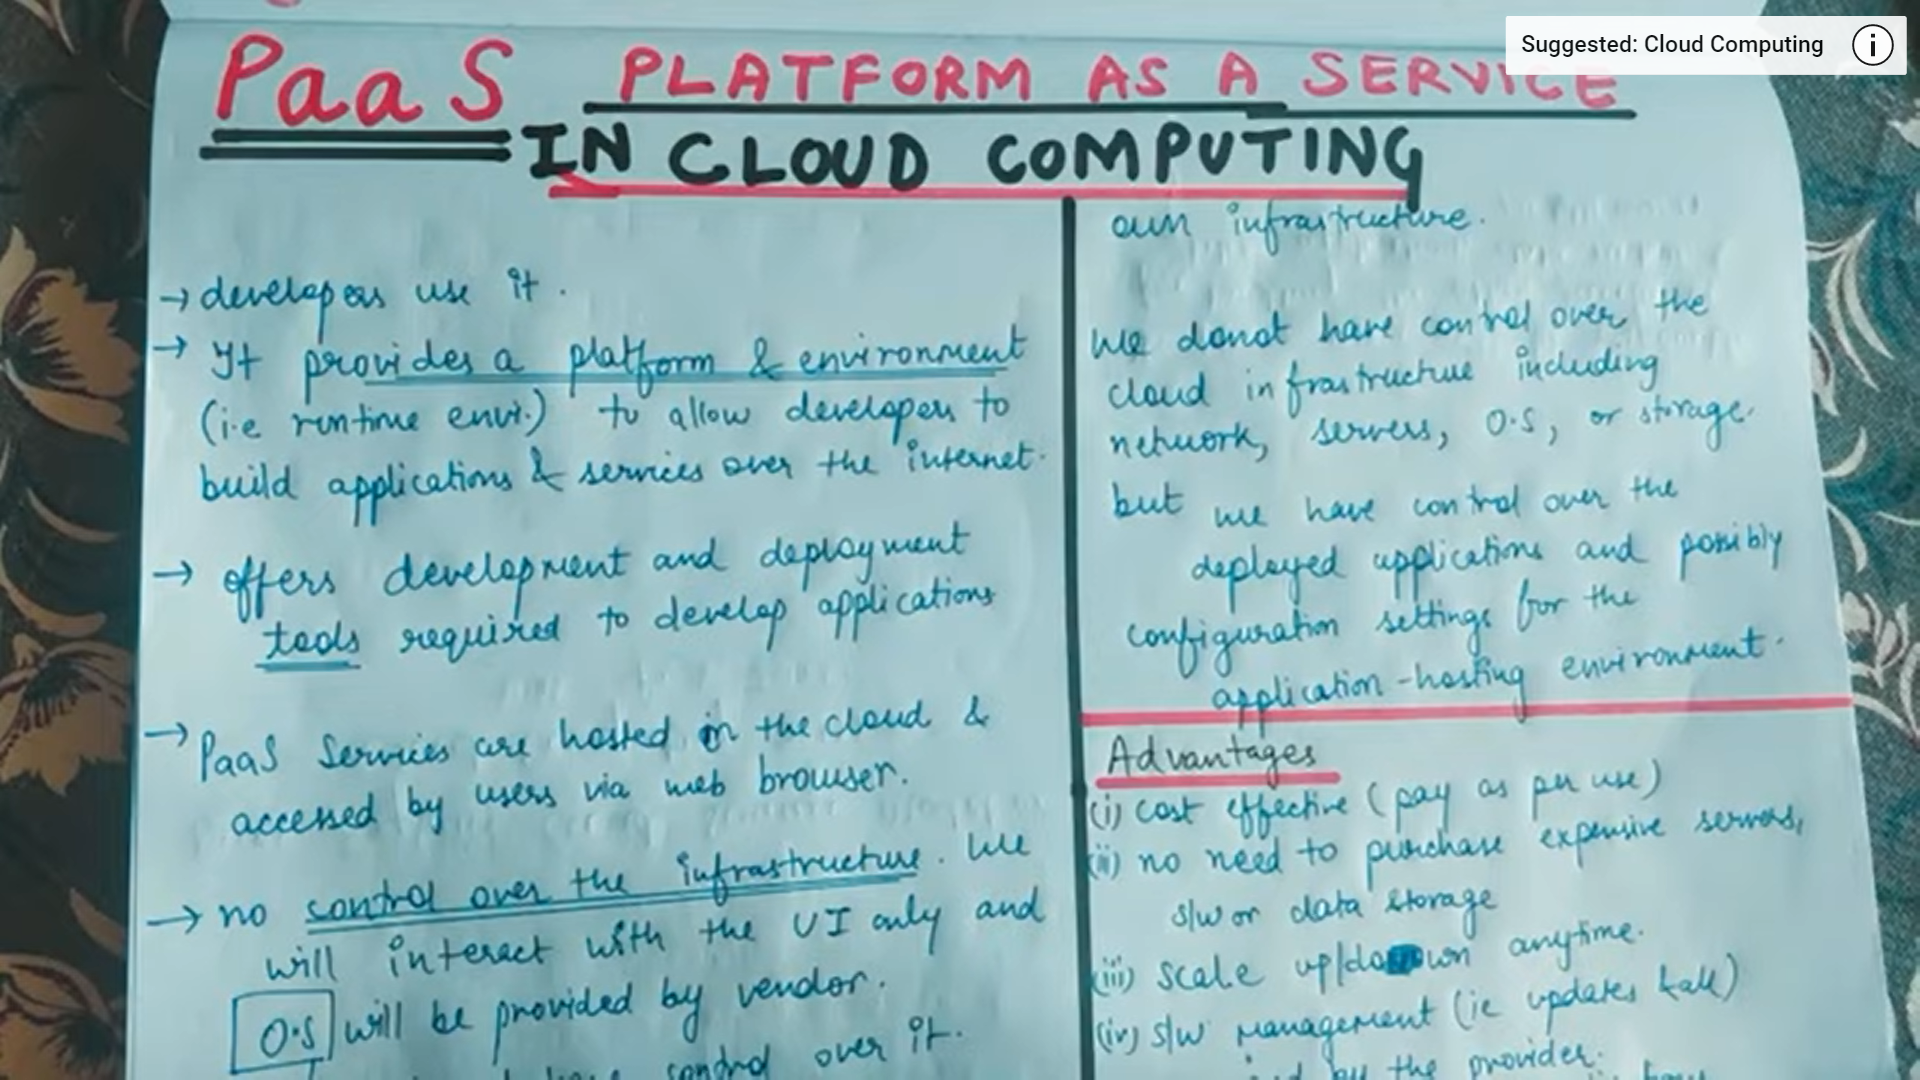 Suggested: Cloud Computing
PaaS PLATFORM AS A SERVICE
IN CLOUD COMPUTING
→ developers use it.
→ It provides a platform & environment
(i.e runtime envi.) to allow developers to
build applications & services over the internet.
→ offers development and deployment
tools required to develop applications
→ PaaS Services are hosted in the cloud &
accessed by users via web browser.
→ no control over the infrastructure. We
will interact with the UI only and
O.S will be provided by vendor.
control over it.
own infrastructure.
We donot have control over the
cloud infrastructure including
network, servers, O.S, or storage.
but we have control over the
deployed applications and possibly
configuration settings for the
application-hosting environment.
Advantages
(i) cost effective (pay as per use)
(ii) no need to purchase expensive servers,
s/w or data storage
(iii) scale up/down anytime.
(iv) s/w management (ie updates &all)
by the provider.